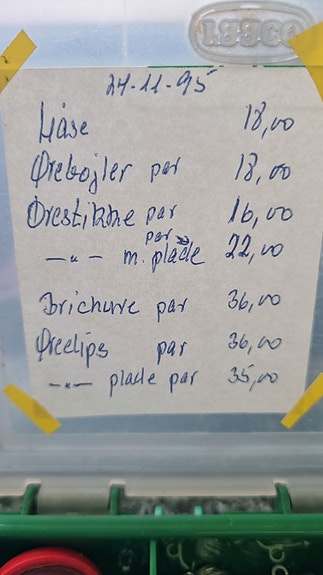 LEGO
24-11-95
Låse 18,00
Ørebøjler par 18,00
Ørestikke par 16,00
par
—"— m. plade 22,00
Brichure par 36,00
Øreclips par 36,00
—"— plade par 35,00